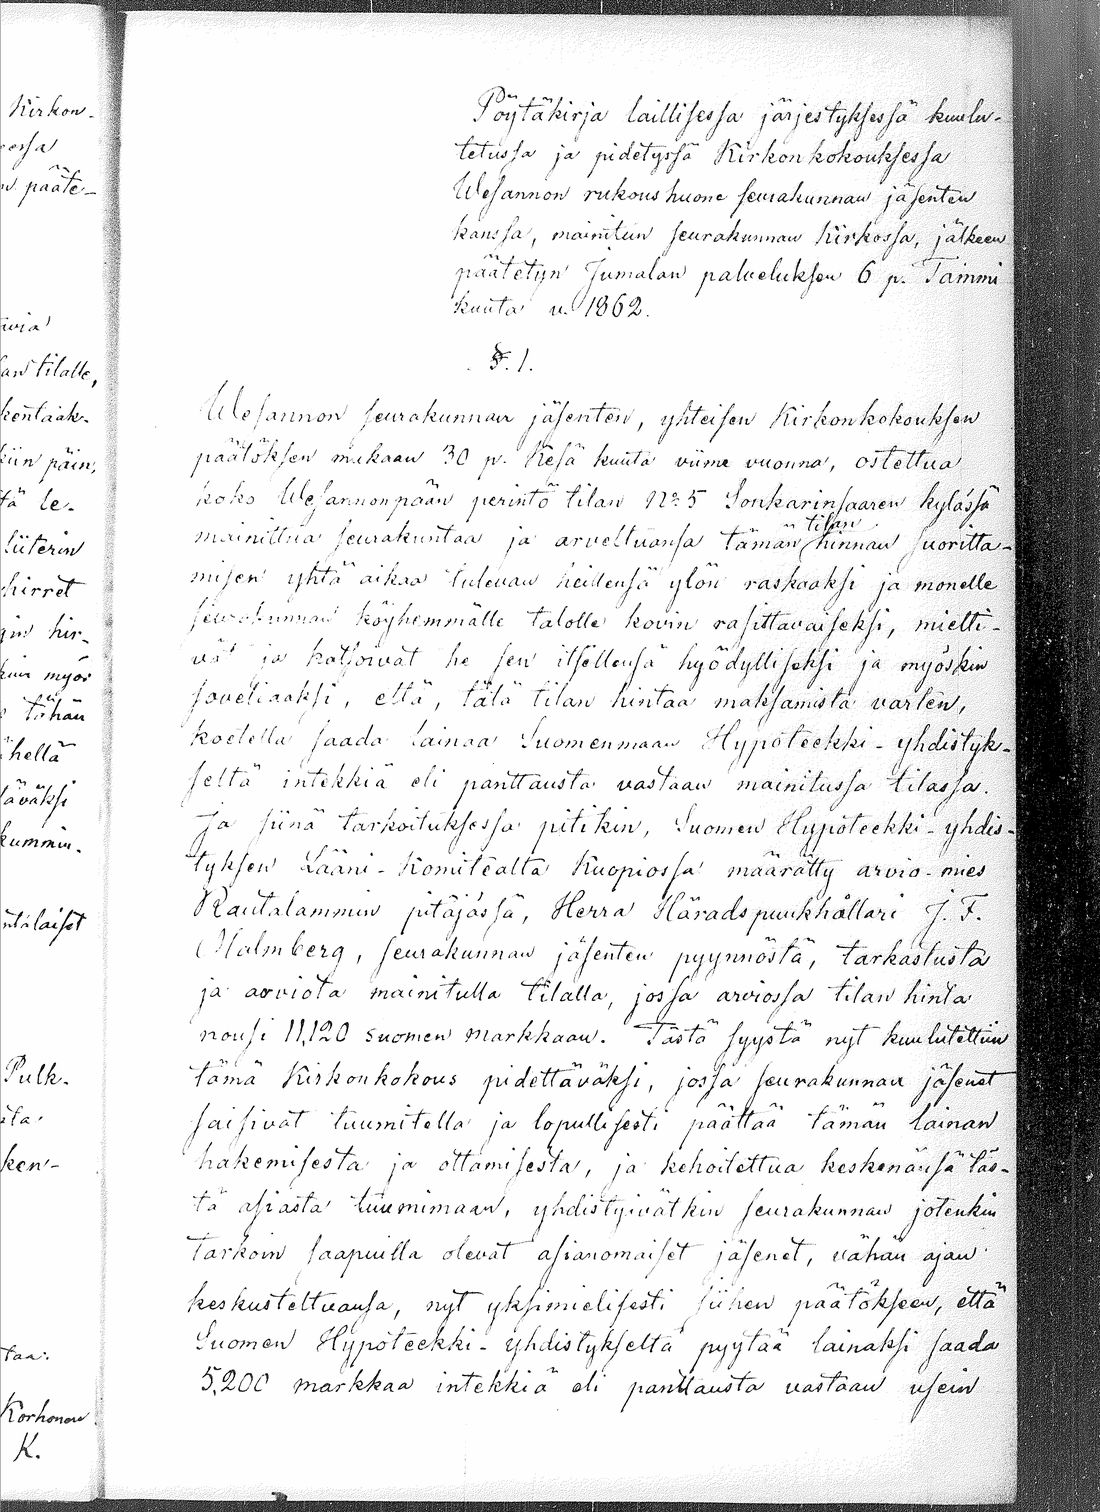 Kirkon-
essa
n pääte-
via
an tilalle,
kentaak-
kiin päin,
tä le-
Siiterin
hirret
gin hir-
kuin myös
tähän
ähellä
täväksi
kummin.
ntalaiset
Pulk-
sta
ken-
taa:
Korhonen
K.
Pöytäkirja laillisessa järjestyksessä kuulu-
tetussa ja pidetyssä Kirkonkokouksessa
Wesannon rukoushuone seurakunnan jäsenten
kanssa, mainitun seurakunnan Kirkossa, jälkeen
päätetyn Jumalan palveluksen 6 p. Tammi
kuuta v. 1862.
§. 1.
Wesannon seurakunnan jäsenten, yhteisen Kirkonkokouksen
päätöksen mukaan 30 p. Kesä kuuta viime vuonna, ostettua
koko Wesannonpään perintö tilan No 5 Sonkarinsaaren kylässä
mainittua seurakuntaa ja arveltuansa tämän tilan hinnan suoritta-
misen yhtä aikaa tulevan heillensä ylön raskaaksi ja monelle
seurakunnan köyhemmälle talolle kovin rasittavaiseksi, mietti-
vät ja katsoivat he sen itsellensä hyödylliseksi ja myöskin
soveliaaksi, että, tätä tilan hintaa maksamista varten,
koetella saada lainaa Suomenmaan Hypoteekki-yhdistyk-
seltä intekkiä eli panttausta vastaan mainitussa tilassa.
Ja siinä tarkoituksessa pitikin, Suomen Hypoteekki-yhdis-
tyksen Lääni-Komitealta Kuopiossa määrätty arvio-mies
Rautalammin pitäjässä, Herra Häradspuukhållari J. F.
Malmberg, seurakunnan jäsenten pyynnöstä, tarkastusta
ja arviota mainitulla tilalla, jossa arviossa tilan hinta
nousi 11,120 suomen markkaan. Tästä syystä nyt kuulutettiin
tämä Kirkonkokous pidettäväksi, jossa seurakunnan jäsenet
saisivat tuumitella ja lopullisesti päättää tämän lainan
hakemisesta ja ottamisesta, ja kehoitettua keskenänsä täs-
tä asiasta tuumimaan, yhdistyivätkin seurakunnan jotenkin
tarkoin saapuilla olevat asianomaiset jäsenet, vähän ajan
keskusteltuansa, nyt yksimielisesti siihen päätökseen, että
Suomen Hypoteekki-yhdistykseltä pyytää lainaksi saada
5,200 markkaa intekkiä eli panttausta vastaan usein